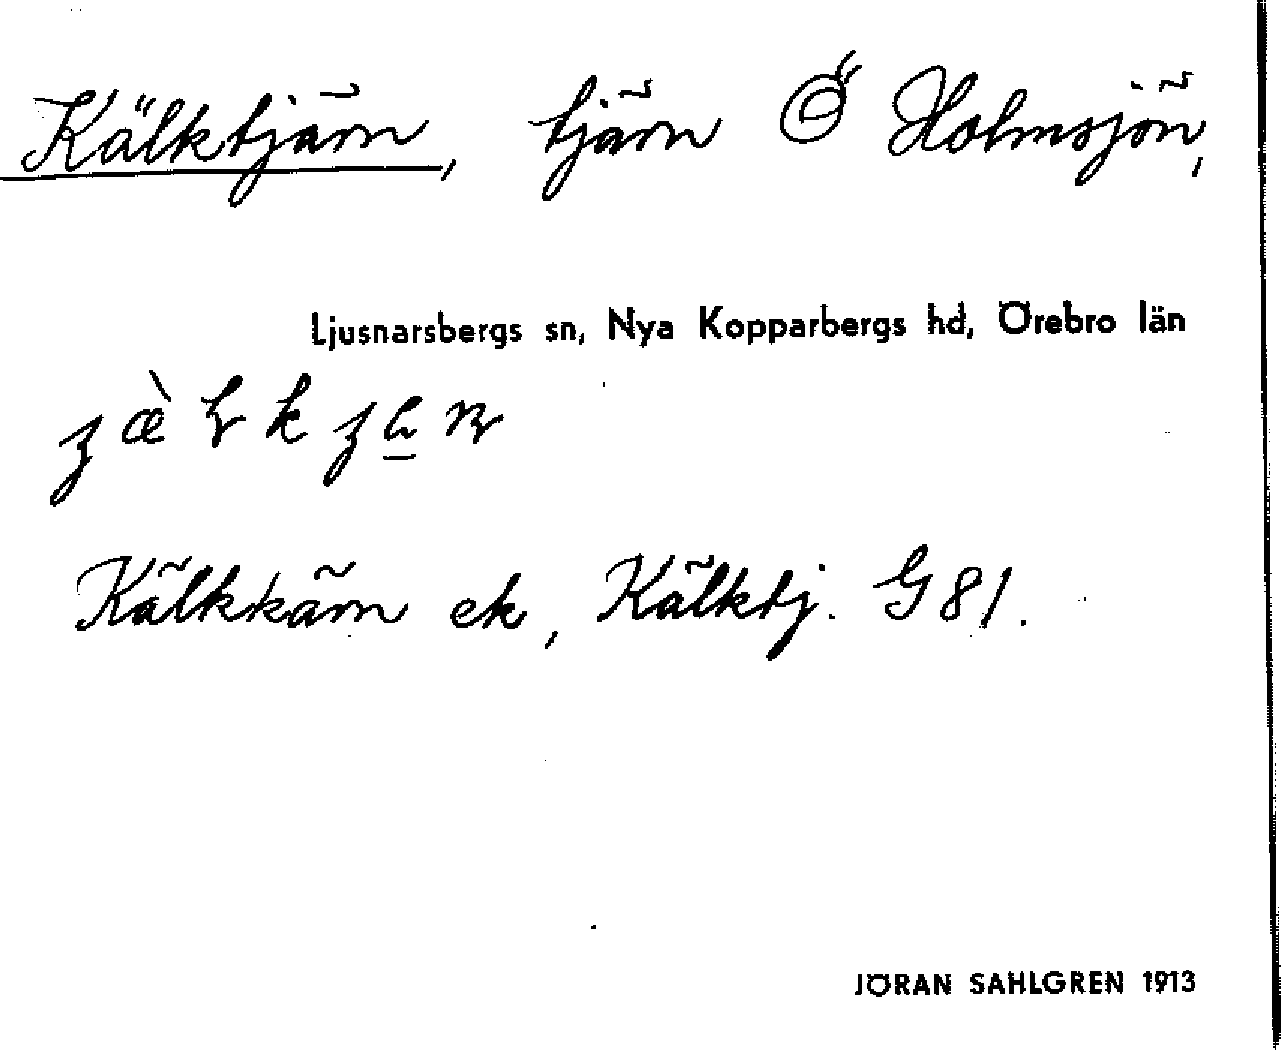 Kälktjärn, tjärn Ö Holmsjön,
Ljusnarsbergs sn, Nya Kopparbergs hd, Örebro län
Kälkkärn ek, Kälktj. G81.
JÖRAN SAHLGREN 1913